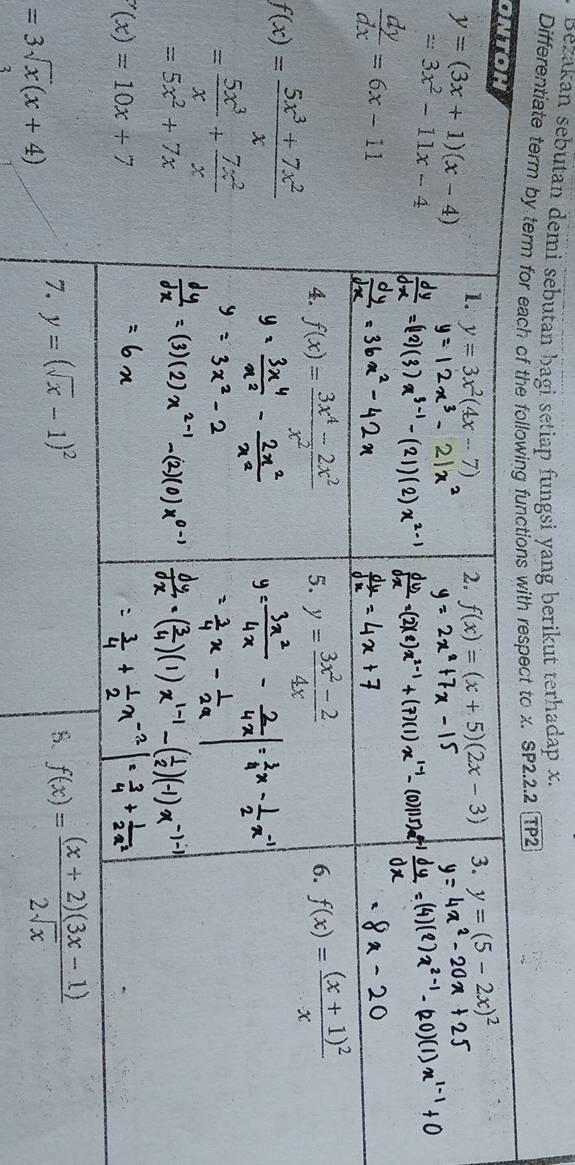 Bezakan sebutan demi sebutan bagi setiap fungsi yang berikut terhadap x.
Differentiate term by term for each of the following functions with respect to x. SP2.2.2 TP2
ONTOH
y = (3x + 1)(x − 4)
= 3x² − 11x − 4
dy/dx = 6x − 11
f(x) = (5x³ + 7x²)/x
= 5x³/x + 7x²/x
= 5x² + 7x
'(x) = 10x + 7
1. y = 3x²(4x − 7)
y = 12x³ − 21x²
dy/dx = (12)(3)x³⁻¹ − (21)(2)x²⁻¹
dy/dx = 36x² − 42x
2. f(x) = (x + 5)(2x − 3)
y = 2x² + 7x − 15
dy/dx = (2)(2)x²⁻¹ + (7)(1)x¹⁻¹ − (0)(15)x⁰⁻¹
dy/dx = 4x + 7
3. y = (5 − 2x)²
y = 4x² − 20x + 25
dy/dx = (4)(2)x²⁻¹ − (20)(1)x¹⁻¹ + 0
= 8x − 20
4. f(x) = (3x⁴ − 2x²)/x²
y = 3x⁴/x² − 2x²/x²
y = 3x² − 2
dy/dx = (3)(2)x²⁻¹ − (2)(0)x⁰⁻¹
= 6x
5. y = (3x² − 2)/4x
y = 3x²/4x − 2/4x = 3/4 x − 1/2 x⁻¹
= 3/4 x − 1/2x
dy/dx = (3/4)(1)x¹⁻¹ − (1/2)(−1)x⁻¹⁻¹
= 3/4 + 1/2 x⁻² = 3/4 + 1/2x²
6. f(x) = (x + 1)²/x
= 3√x(x + 4)
7. y = (√x − 1)²
8. f(x) = (x + 2)(3x − 1)/2√x